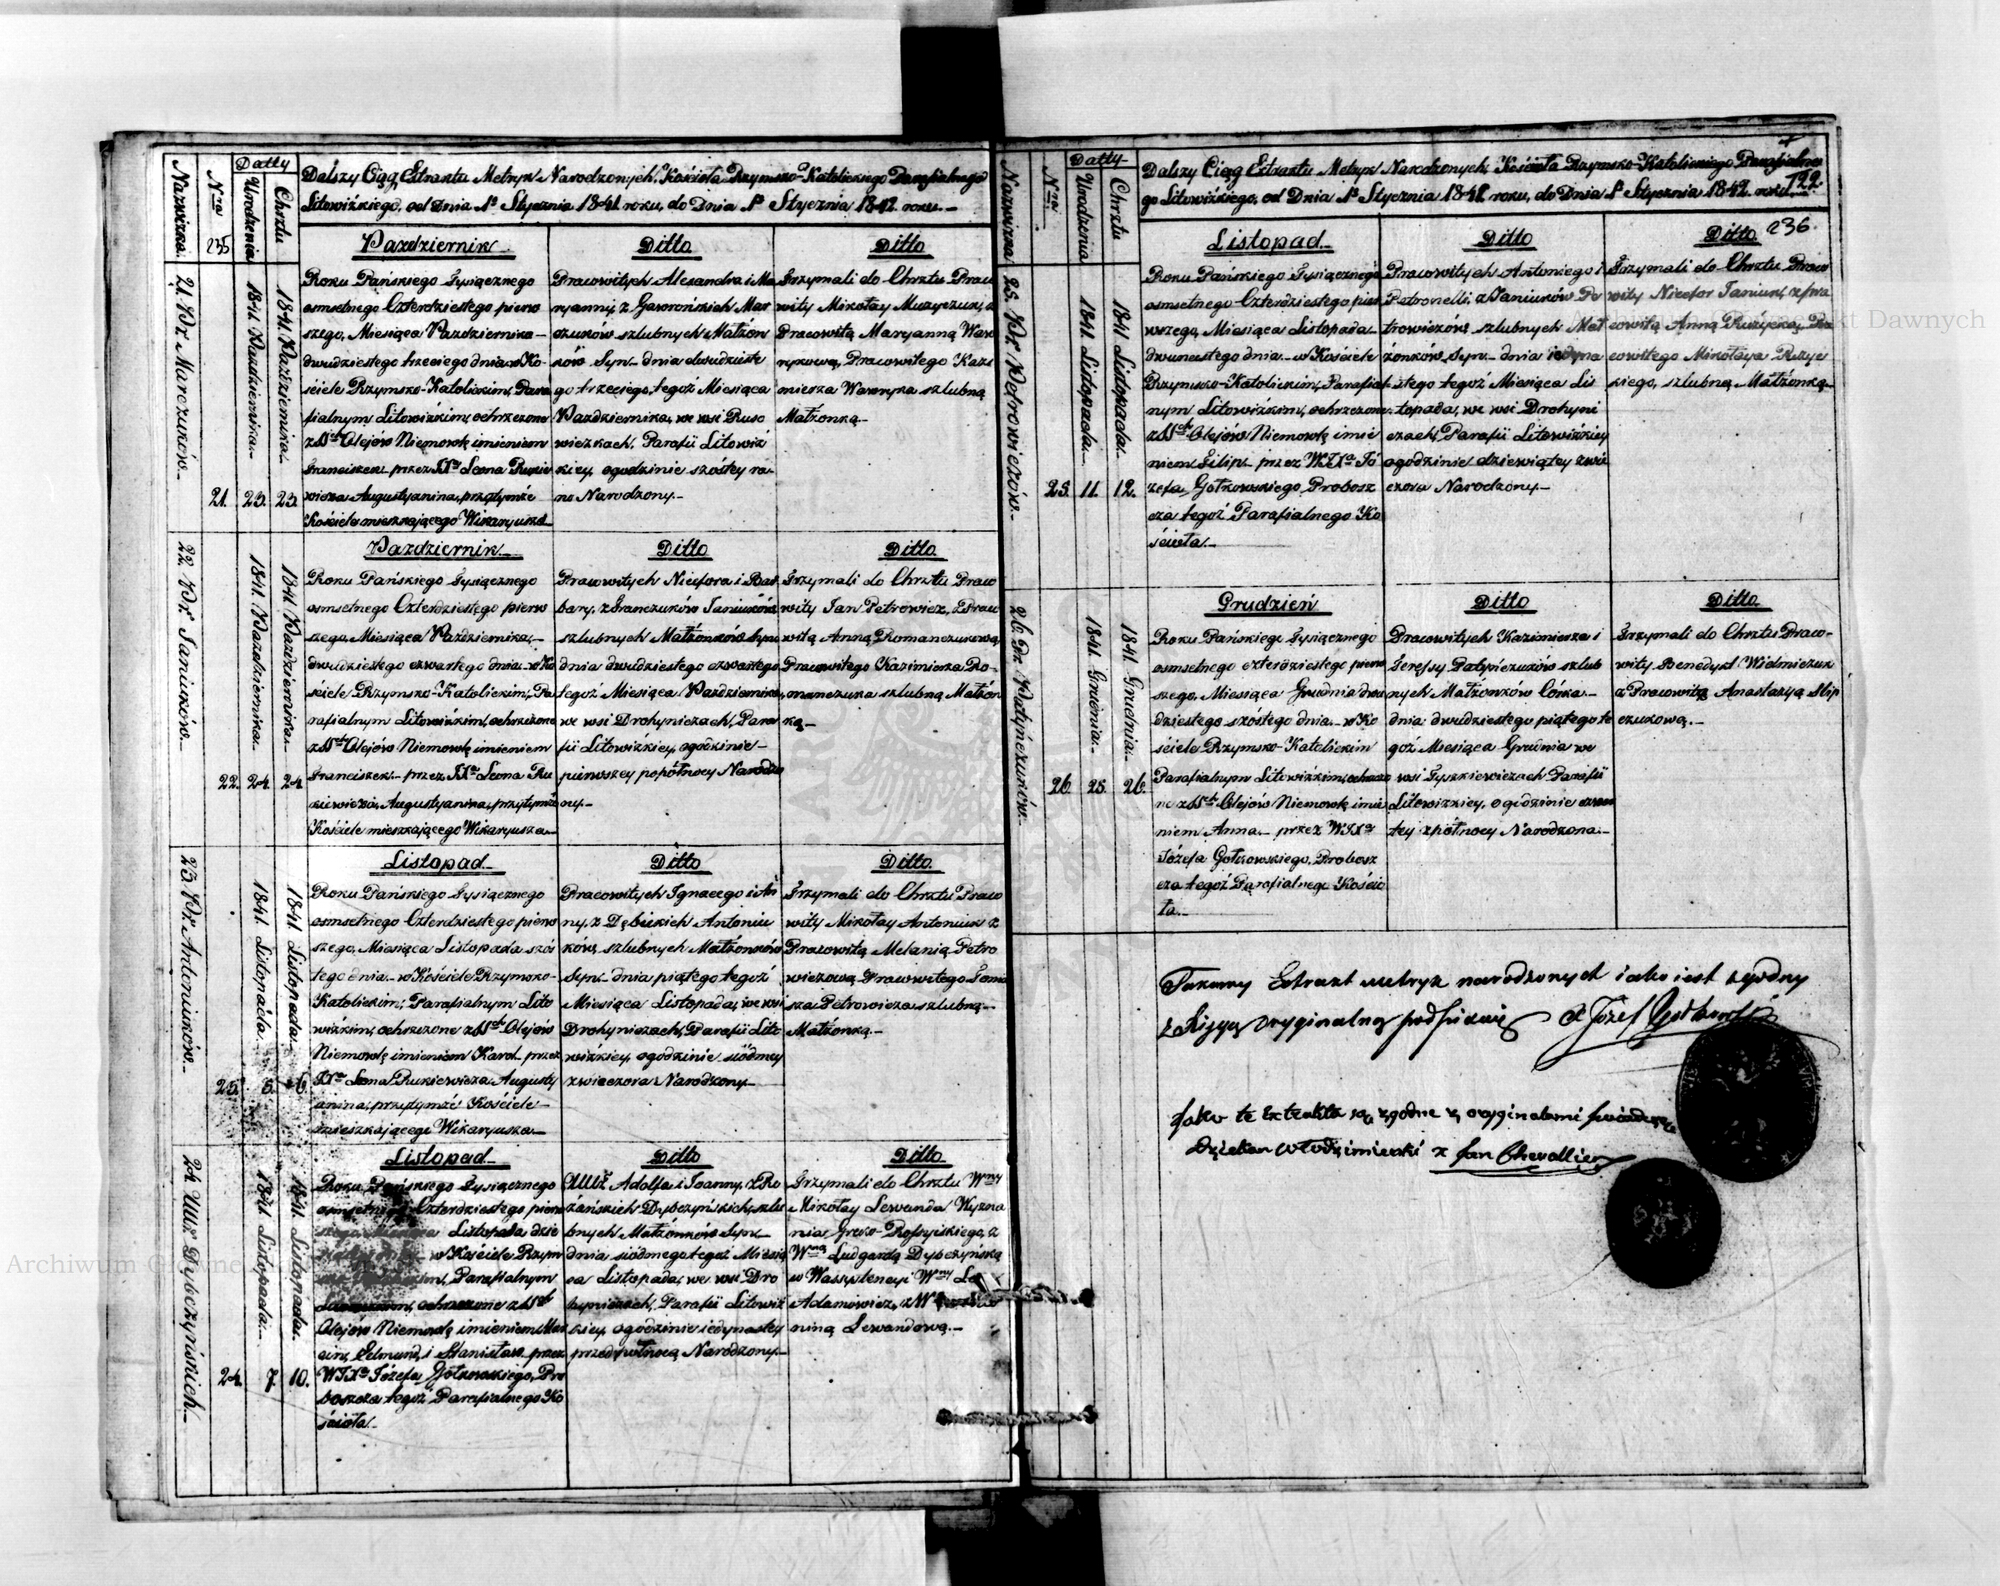 Nazwiska.
Nra
235
Datty
Urodzenia
Chrztu
Dalszy Ciąg Extraktu Metryk Narodzonych, Kościoła Rzymsko-Katolickiego Parafialnego
Litowizkiego, od Dnia 1o Stycznia 1841 roku, do Dnia 1o Stycznia 1842 roku.
21. Pr. Marczuków.
21.
1841. Pazdziernika.
23.
1841. Pazdziernika.
23.
Pazdziernik.
Roku Pańskiego Tysiącznego
osmsetnego Czterdziestego pierw
szego, Miesiąca Pazdziernika
dwudziestego trzeciego dnia w Ko
ściele Rzymsko-Katolickim, Para
fialnym Litowizkim, ochrzczono
z SS. Olejów Niemowlę imieniem
Franciszek przez Xa Leona Rukie
wicza Augustyanina, przytymże
Kościele mieszkającego Wikaryusza
Ditto
Pracowitych Alexandra i Ma
ryanny, z Gaworońskich Mar
czuków szlubnych Małżon
ków Syn dnia dwudzieste
go trzeciego, tegoż Miesiąca
Pazdziernika, we wsi Ruso
wiczkach, Parafii Litowiz
kiey, ogodzinie szóstey ra
no Narodzony.
Ditto
Trzymali do Chrztu Praco
wity Mikołay Muzyczuk, z
Pracowitą Maryanną Waw
rykową, Pracowitego Kazi
mierza Wawryka szlubną
Małżonką.
22. Pr. Janiuków.
22.
1841. Pazdziernika.
24.
1841. Pazdziernika.
24.
Pazdziernik
Roku Pańskiego Tysiącznego
osmsetnego Czterdziestego pierw
szego, Miesiąca Pazdziernika,
dwudziestego czwartego dnia w Ko
ściele Rzymsko-Katolickim, Pa
rafialnym Litowizkim, ochrzczono
z SS. Olejów Niemowlę imieniem
Franciszek przez Xa Leona Ru
kiewicza, Augustyanina, przytymże
Kościele mieszkającego Wikaryusza
Ditto
Pracowitych Nicefora i Bar
bary, z Franczuków Janiuków
szlubnych Małżonków Syn
dnia dwudziestego czwartego
tegoż Miesiąca Pazdziernika,
we wsi Drohyniczach, Para
fii Litowizkiey, ogodzinie
pierwszey popółnocy Narodzo
ny.
Ditto
Trzymali do Chrztu Praco
wity Jan Petrowicz, z Praco
witą Anną Romanczukową,
Pracowitego Kazimierza Ro-
manczuka szlubną Małżon
ką.
23. Pr. Antoniuków.
23.
1841. Listopada.
5.
1841. Listopada.
6.
Listopad.
Roku Pańskiego Tysiącznego
osmsetnego Czterdziestego pierw
szego, Miesiąca Listopada szós
tego dnia w Kościele Rzymsko-
Katolickim, Parafialnym Lito
wizkim, ochrzczono z SS. Olejów
Niemowlę imieniem Karol przez
Xa Leona Rukiewicza Augusty
anina, przytymże Kościele
mieszkającego Wikaryusza.
Ditto
Pracowitych Ignacego i An
ny, z Dębickich Antoniu
ków, szlubnych Małżonków
Syn dnia piątego tegoż
Miesiąca Listopada, we wsi
Drohyniczach, Parafii Lito
wizkiey, ogodzinie siódmey
zwieczora Narodzony.
Ditto
Trzymali do Chrztu Praco
wity Mikołay Antoniuk z
Pracowitą Melanią Petro
wiczową, Pracowitego Toma
sza Petrowicza szlubną
Małżonką.
24. Dybczyńskich.
24.
1841. Listopada.
7.
1841. Listopada.
10.
Listopad
Roku Pańskiego Tysiącznego
osmsetnego Czterdziestego pierw
szego, Miesiąca Listopada dzie
w Kościele Rzym
Parafialnym
ochrzczono z SS.
Olejów Niemowlę imieniem Mar
cin, Edmund, i Stanisław przez
WJXa Józefa Gołkowskiego, Pro
boszcza tegoż Parafialnego Ko
ścioła.
Ditto
Adolfa i Joanny, z Ro
żańskich Dybczyńskich, szlu
bnych Małżonków Syn
dnia siódmego tegoż Miesią
ca Listopada, we wsi Dro
hyniczach, Parafii Litowiz
kiey, ogodzinie iedynastey
przed północą Narodzony.
Ditto
Trzymali do Chrztu Wny
Mikołay Lewanda Wyzna
nia Greko-Rossyiskiego, z
Wną Ludgardą Dybczyńską
w Assystencyi Wny
Adamowicz, z
niną Lewandową.
Nazwiska
Nra
Datty
Urodzenia
Chrztu
Dalszy Ciąg Extraktu Metryk Narodzonych, Kościoła Rzymsko-Katolickiego Parafialne
go Litowizkiego, od Dnia 1o Stycznia 1841 roku, do Dnia 1o Stycznia 1842 roku.
122.
236.
25. Pr. Petrowiczów.
25.
1841. Listopada.
11.
1841 Listopada.
12.
Listopad
Roku Pańskiego Tysiącznego
osmsetnego Czterdziestego pier
wszego, Miesiąca Listopada
dwunastego dnia w Kościele
Rzymsko-Katolickim, Parafial
nym Litowizkim, ochrzczono
z SS. Olejów Niemowlę imie
niem Filip przez WJXa Jó
zefa Gołkowskiego Probosz
cza tegoż Parafialnego Ko
ścioła.
Ditto
Pracowitych Antoniego i
Petronelli, z Janiuków Pe
trowiczów, szlubnych Mał
żonków, Syn dnia iedyna
stego tegoż Miesiąca Lis
topada, we wsi Drohyni
czach, Parafii Litowizkiey
ogodzinie dziewiątey zwie
czora Narodzony.
Ditto
Trzymali do Chrztu Praco
wity Nicefor Janiuk, z Pra
cowitą Anną Ruzycką, Pra
cowitego Mikołaya Ruzyc
kiego, szlubną Małżonką.
26. Pr. Patyńczuków.
26.
1841. Grudnia.
25.
1841. Grudnia.
26.
Grudzień
Roku Pańskiego Tysiącznego
osmsetnego czterdziestego pierw
szego, Miesiąca Grudnia dwu
dziestego szóstego dnia w Ko
ściele Rzymsko-Katolickim
Parafialnym Litowizkim, ochrzczo
no z SS. Olejów Niemowlę imie
niem Anna przez WJXa
Józefa Gołkowskiego, Probosz
cza tegoż Parafialnego Kościo
ła.
Ditto
Pracowitych Kazimierza i
Teressy Patyńczuków szlub
nych Małżonków Córka
dnia dwudziestego piątego te
goż Miesiąca Grudnia we
wsi Tyszkiewiczach Parafii
Litowizkiey, ogodzinie czwar
tey zpółnocy Narodzona.
Ditto
Trzymali do Chrztu Praco-
wity Benedykt Widmiczuk
z Pracowitą Anastazyą Slip
czukową.
Takowy Extrakt metryk narodzonych iako iest zgodny
z Xięgą oryginalną podpisuię X Józef Gołkowski
Jako te Extrakta są zgodne z oryginałami świadczę
Dziekan Włodzimirski X Jan Chevallier
Archiwum Główne Akt Dawnych
Archiwum Główne